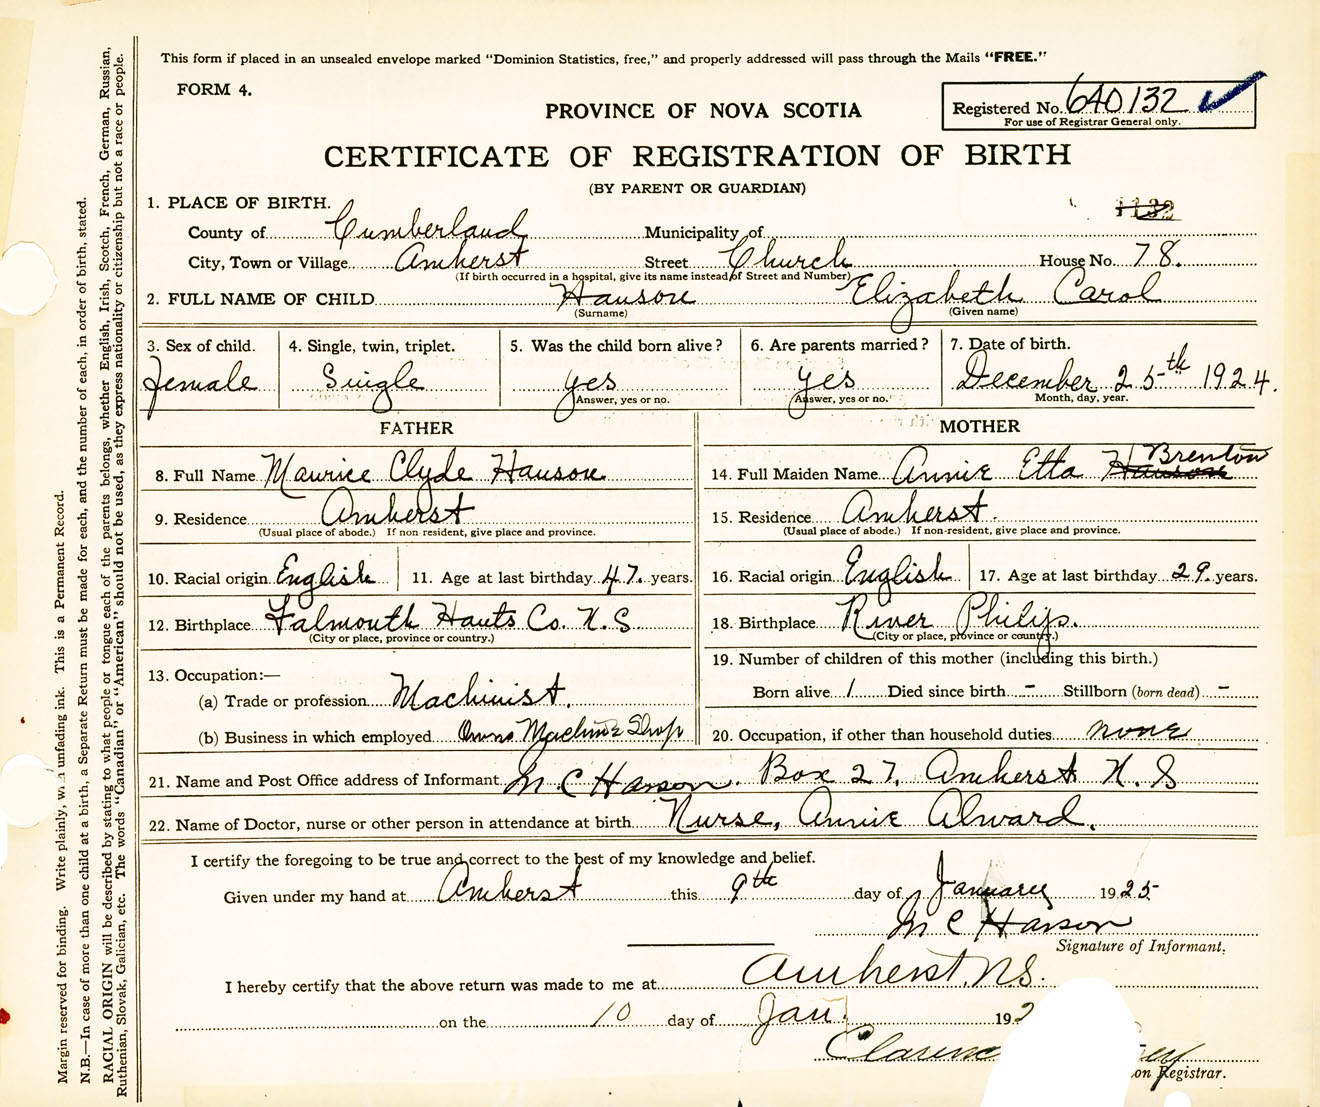 This form if placed in an unsealed envelope marked "Dominion Statistics, free," and properly addressed will pass through the Mails "FREE."
FORM 4.
Registered No. 640132
For use of Registrar General only.
PROVINCE OF NOVA SCOTIA
CERTIFICATE OF REGISTRATION OF BIRTH
(BY PARENT OR GUARDIAN)
1. PLACE OF BIRTH.
1132
County of Cumberland Municipality of
City, Town or Village Amherst Street Church House No. 78.
(If birth occurred in a hospital, give its name instead of Street and Number)
2. FULL NAME OF CHILD Hanson Elizabeth Carol
(Surname) (Given name)
3. Sex of child. 4. Single, twin, triplet. 5. Was the child born alive? 6. Are parents married? 7. Date of birth.
Female Single yes yes December 25th 1924.
Answer, yes or no. Answer, yes or no. Month, day, year.
FATHER
8. Full Name Maurice Clyde Hanson
9. Residence Amherst
(Usual place of abode.) If non-resident, give place and province.
10. Racial origin English 11. Age at last birthday 47. years.
12. Birthplace Falmouth Hants Co. N.S
(City or place, province or country.)
13. Occupation:—
(a) Trade or profession Machinist.
(b) Business in which employed Owns Machine Shop
MOTHER
14. Full Maiden Name Annie Etta Hanson Brenton
15. Residence Amherst.
(Usual place of abode.) If non-resident, give place and province.
16. Racial origin English 17. Age at last birthday 29. years.
18. Birthplace River Philip.
(City or place, province or country.)
19. Number of children of this mother (including this birth.)
Born alive 1 Died since birth - Stillborn (born dead) -
20. Occupation, if other than household duties none
21. Name and Post Office address of Informant M C Hanson. Box 27. Amherst N.S
22. Name of Doctor, nurse or other person in attendance at birth Nurse, Annie Alward.
I certify the foregoing to be true and correct to the best of my knowledge and belief.
Given under my hand at Amherst this 9th day of January 1925
M C Hanson
Signature of Informant.
I hereby certify that the above return was made to me at Amherst, N.S.
on the 10 day of Jan. 192
Clarenc
on Registrar.
Margin reserved for binding. Write plainly, unfading ink. This is a Permanent Record.
N.B.—In case of more than one child at a birth, a Separate Return must be made for each, and the number of each, in order of birth, stated.
RACIAL ORIGIN will be described by stating to what people or tongue each of the parents belongs, whether English, Irish, Scotch, French, German, Russian,
Ruthenian, Slovak, Galician, etc. The words "Canadian" or "American" should not be used, as they express nationality or citizenship but not a race or people.